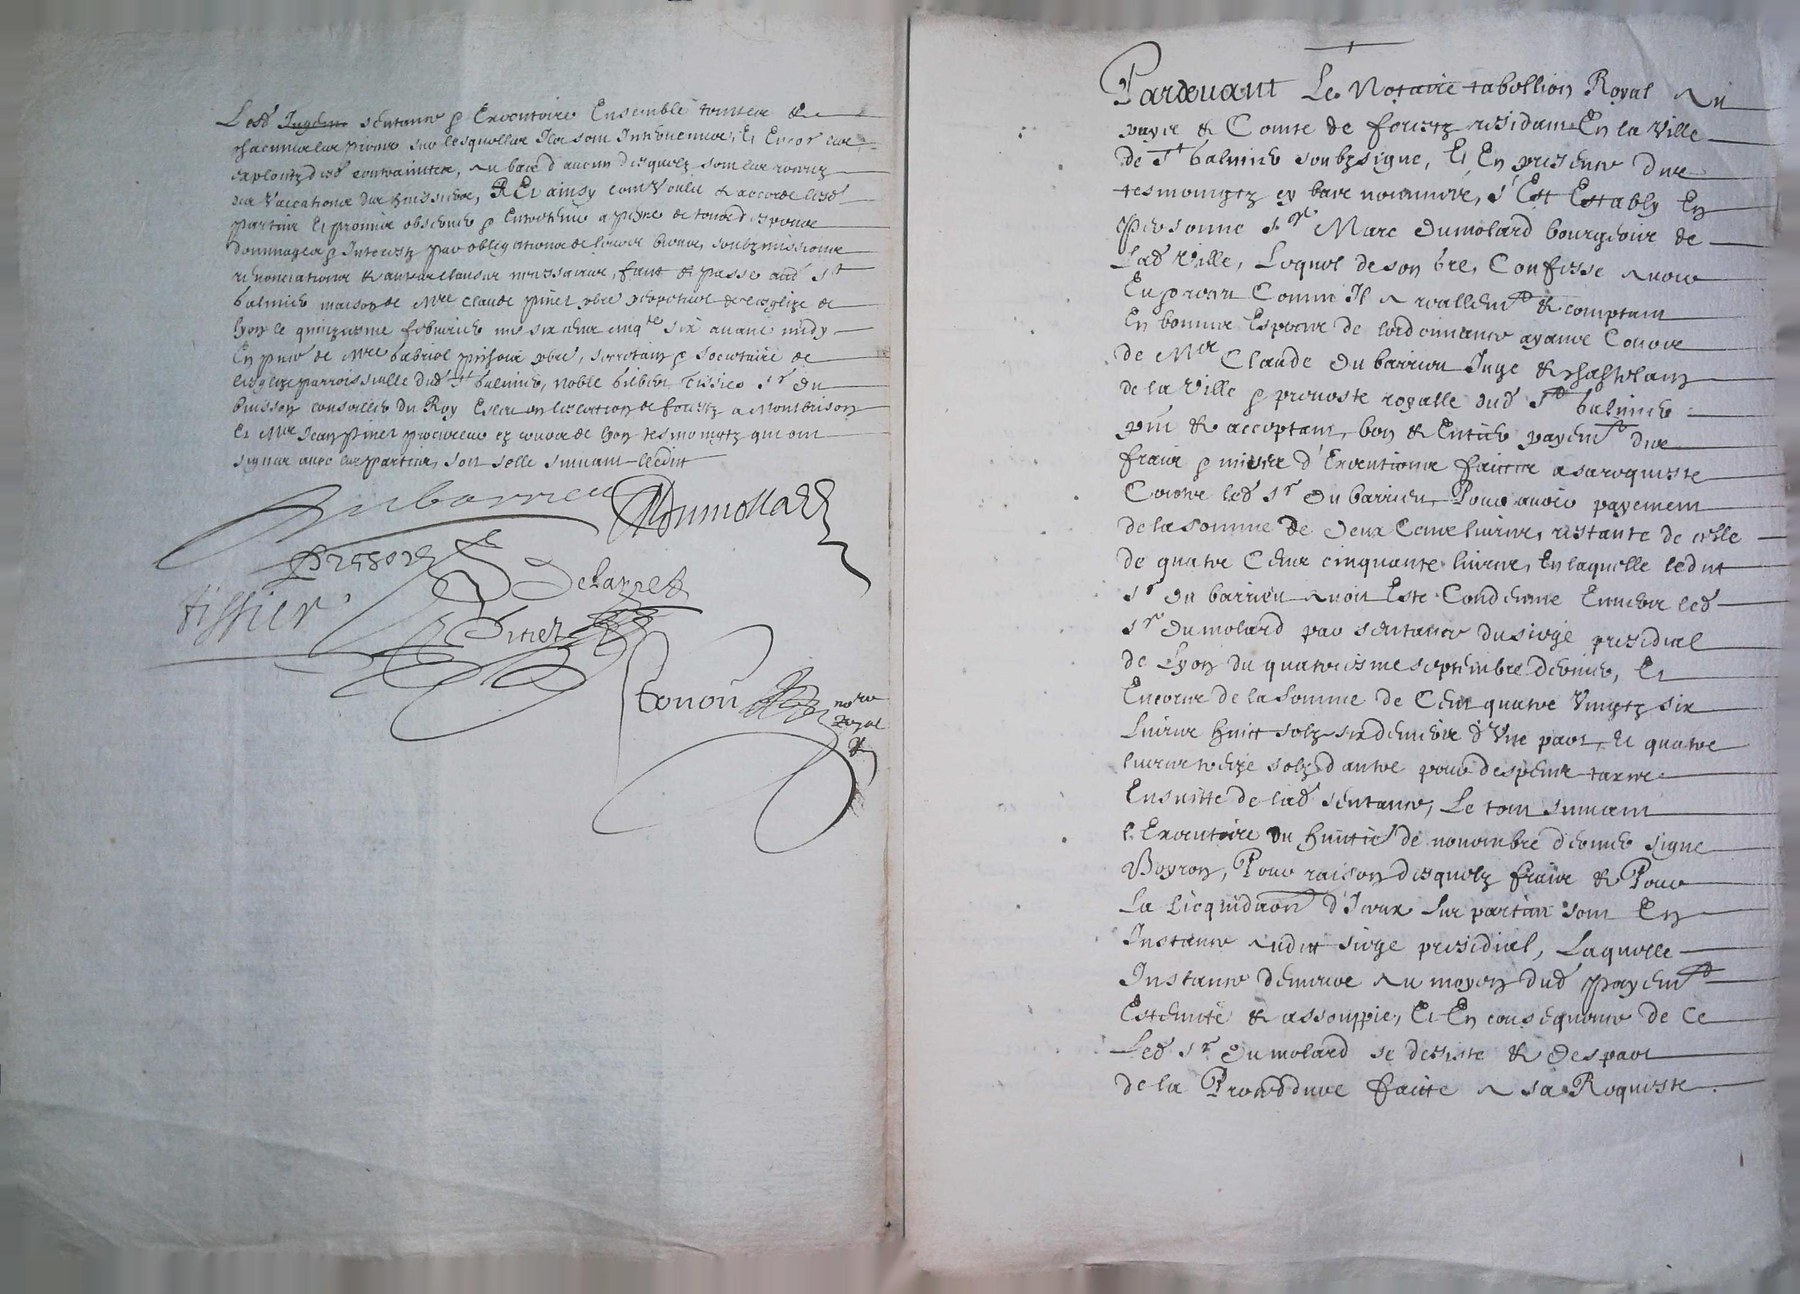 Pardevant Le Notaire tabellion Royal au
pays & Comte de forestz residant En la Ville
de St Galmier soubzsigne, Et En presence des
tesmoingtz cy bas nommes, s'Est Estably En
personne Sr Marc Dumolard bourgeois de
Lad Ville, Lequel de son gre, Confesse avoir
Eu & receu Comme Il a reallemt & comptant
En bonnes Especes de lordonnance ayant Cours
de Mre Claude Du barrieu Juge & chastelain
de la Ville & prevoste royalle dud St galmier
pnt & acceptant, bon & Entier payemt des
fraix & mises d'Executions faictes a sa requeste
Contre led Sr Du barrieu Pour avoir payement
de la somme de Deux Cens livres, restante de celle
de quatre Cens cinquante livres, En laquelle ledit
Sr Du barrieu avoit Este Condemne Envers led
Sr Dumolard par sentance du siege presidial
de Lyon du quatorziesme septembre dernier, Et
Encores de la somme de Cent quatre Vingtz six
Livres huict solz six deniers d'Une part, Et quatre
livres treize solz d'autre pour despens taxes
Ensuitte de lad sentance, Le tout suivant
l'Executoire du huictie de novembre dernier signe
Boyron, Pour raison desquelz fraix & Pour
La Licquidaon d'Iceux Les parties sont En
Instance audit siege presidial, Laquelle
Instance demeure au moyen dud payemt
Esteinte & assoupie, Et En consequence de Ce
Led Sr Dumolard se desiste & despart
de la Proceddure faitte a sa Requeste.
Lesd sentance & Executoire Ensemble toutes
chacunes les pieces sur lesquelles Ilz sont Intervenues, Et Encor les
exploictz des contrainctes, au bas d'aucun desquelz sont les receuz
des Vaccations des huissiers, Et ainsy l'ont Voulu & accorde lesd
parties Et promis observer & Entretenir a peyne de tous despens
dommages & Interestz par obligations de leurs biens, soubzmissions
renonciations & autres clauses necessaires, faict & passe aud St
galmier maison de Mre Claude pinet
lyon le quinziesme febvrier mil six cens cinqte six avant midy
En pnce de Mre Gabriel prebre, & Societaire de
lesglize parroissialle dud St Galmier, noble Gilbert Tissier Sr du
buisson conseiller du Roy Esleu en lEslection de forestz a Montbrison
Et Mre Jean Pinet procureur ez cours de lyon tesmoingtz qui ont
signe avec les parties, soit selle suivant ledit
Dubarrieu Dumollard
Delarret
tissier Pinet
tonou
nore
royal